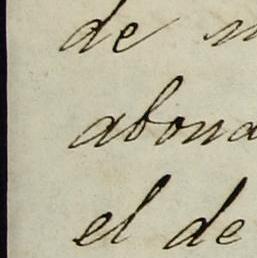 de
abona
el de